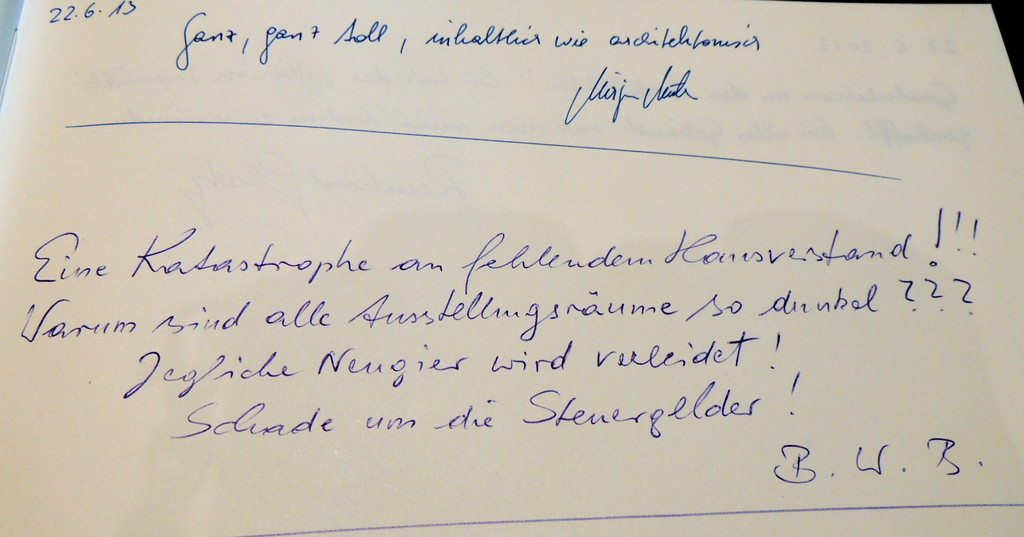 22.6.13
Ganz, ganz toll, inhaltlich wie architektonisch
Eine Katastrophe an fehlendem Hausverstand!!!
Warum sind alle Ausstellungsräume so dunkel ???
Jegliche Neugier wird verleidet!
Schade um die Steuergelder!
B. W. B.